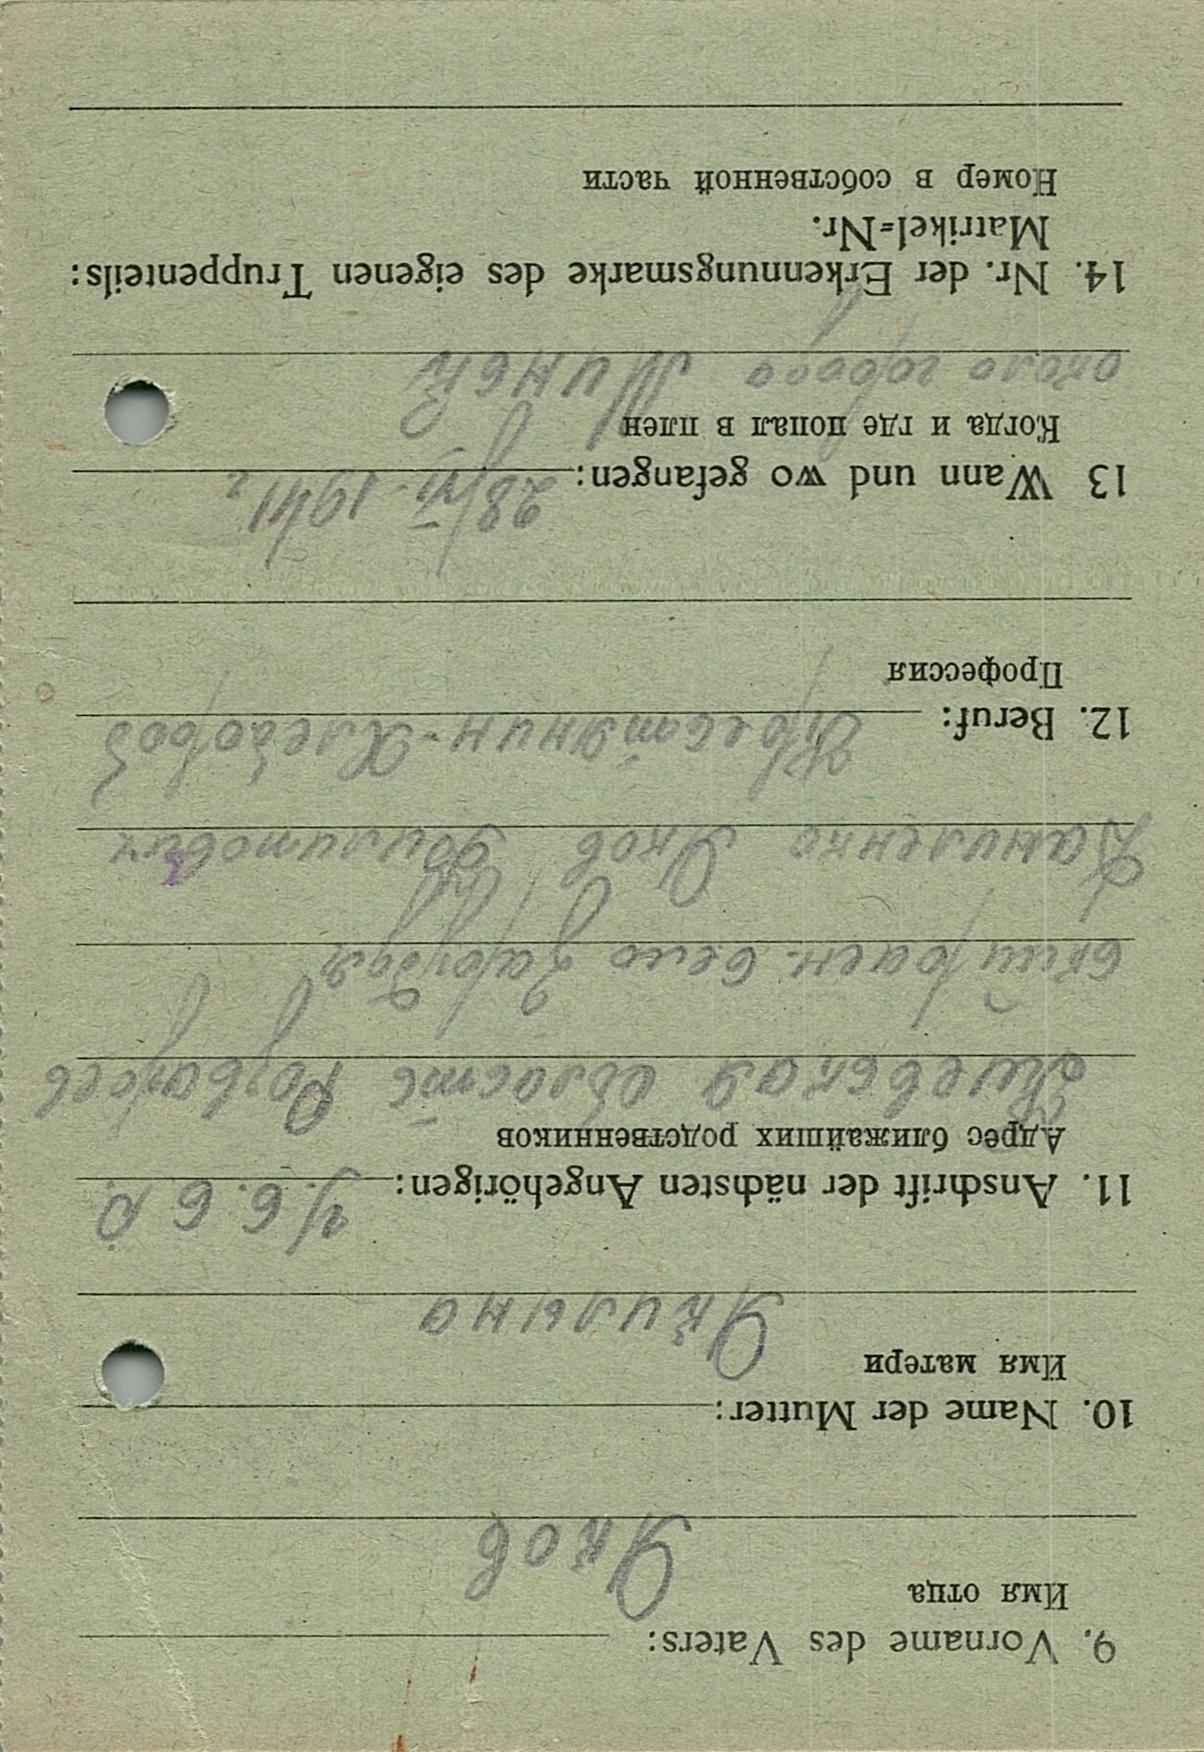 9. Vorname des Vaters:
Имя отца
Яков
10. Name der Mutter:
Имя матери
Акилына
11. Anschrift der nächsten Angehörigen: У. С. С Р.
Адрес ближайших родственников
Киевская область Розважев
ский район. село
Даниленко Яков
12. Beruf: Крестянин-Хлебороб
Профессия
13 Wann und wo gefangen: 28/VI-1941 г
Когда и где попал в плен
около города Минск
14. Nr. der Erkennungsmarke des eigenen Truppenteils:
Matrikel=Nr.
Номер в собственной части